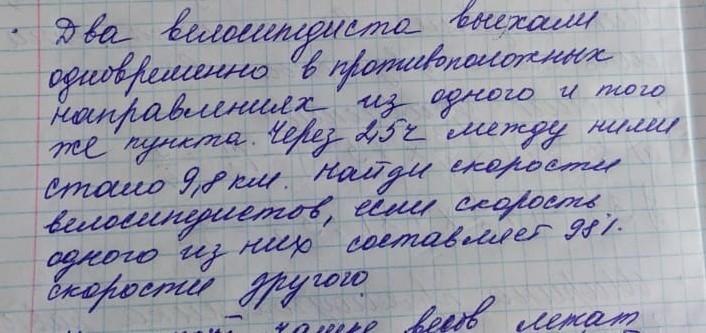 Два велосипедиста выехали
одновременно в противоположных
направлениях из одного и того
же пункта. Через 2,5ч между ними
стало 9,8 км. Найди скорости
велосипедистов, если скорость
одного из них составляет 98%
скорости другого
чашке весов лежат